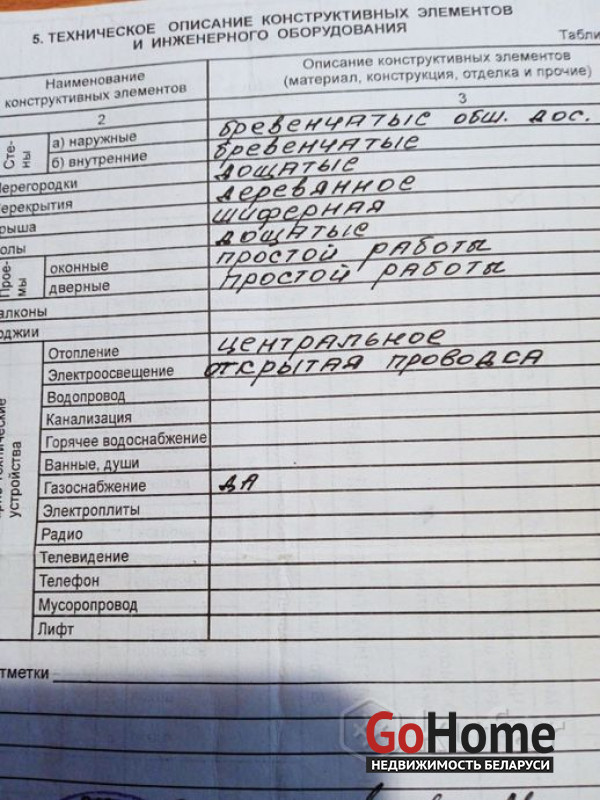 5. ТЕХНИЧЕСКОЕ ОПИСАНИЕ КОНСТРУКТИВНЫХ ЭЛЕМЕНТОВ
И ИНЖЕНЕРНОГО ОБОРУДОВАНИЯ
Табли
Наименование
конструктивных элементов
Описание конструктивных элементов
(материал, конструкция, отделка и прочие)
2
3
Сте-
ны
а) наружные бревенчатыс обш. дос.
б) внутренние бревенчатые
Перегородки дощатые
Перекрытия деревянное
рыша шиферная
олы дощатые
Прое-
мы
оконные простой работы
дверные простой работы
алконы
оджии
устройства
Отопление центральное
Электроосвещение открытая проводса
Водопровод
Канализация
Горячее водоснабжение
Ванные, души
Газоснабжение да
Электроплиты
Радио
Телевидение
Телефон
Мусоропровод
Лифт
тметки
GoHome
НЕДВИЖИМОСТЬ БЕЛАРУСИ